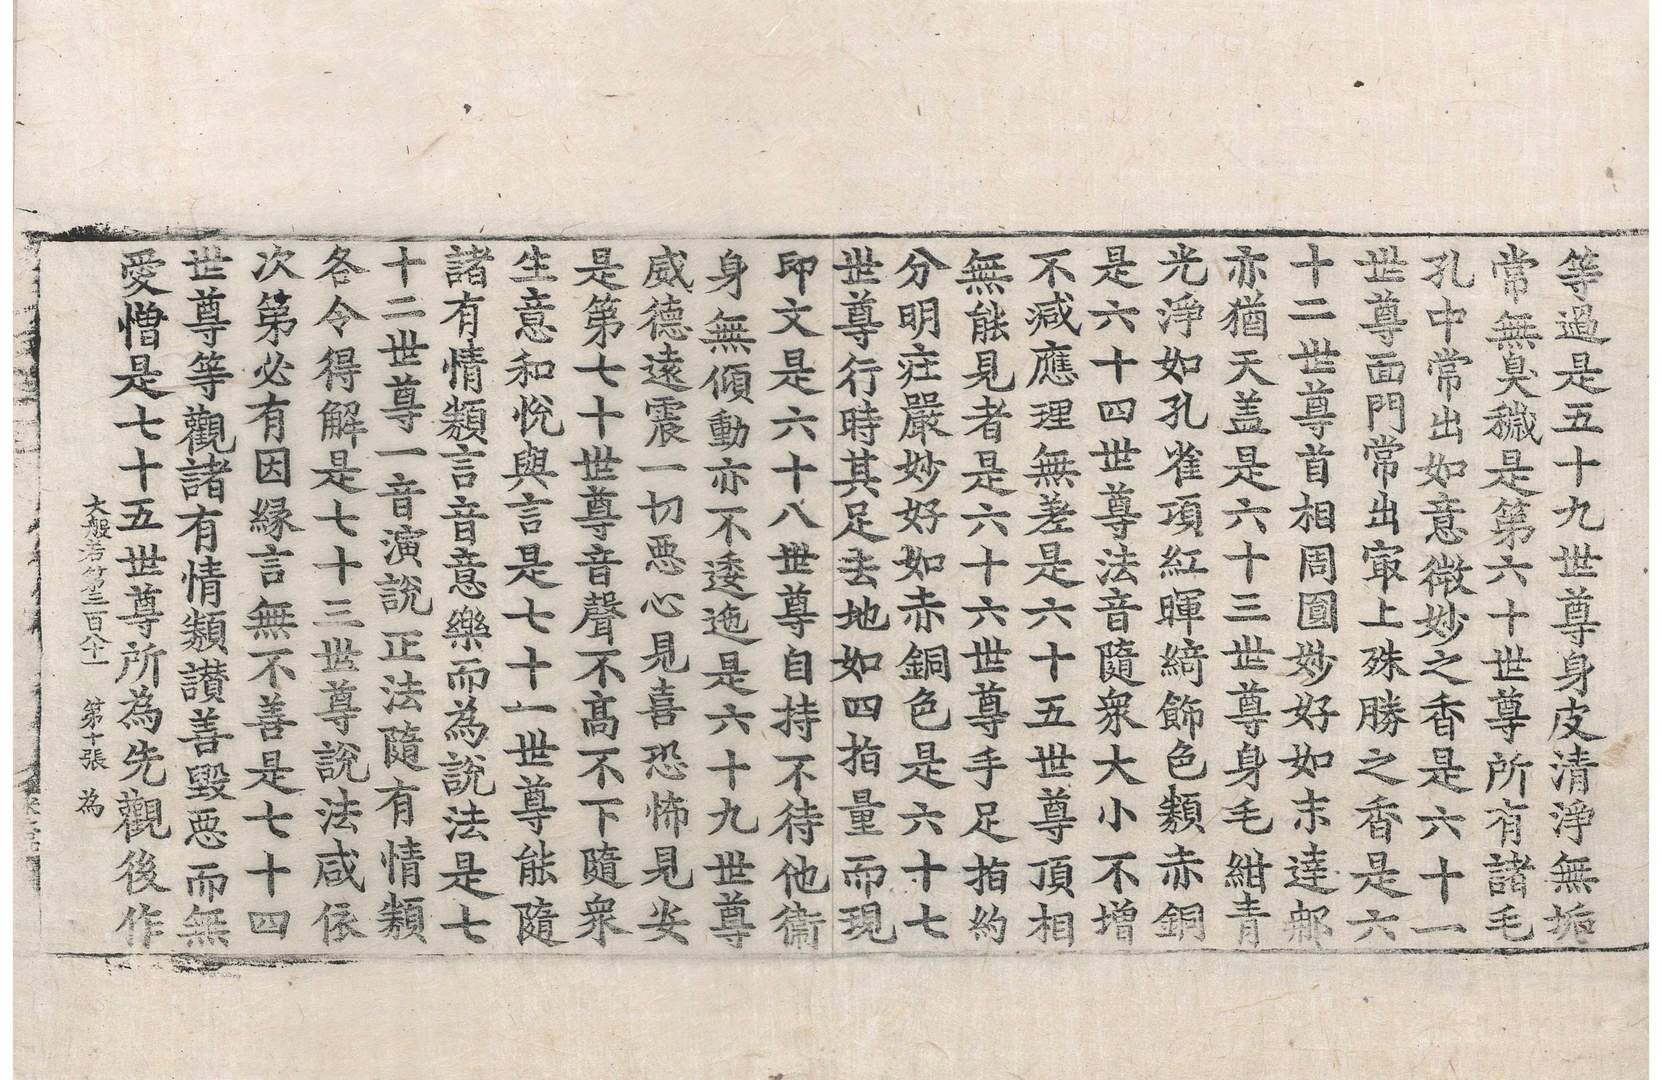 等過是五十九世尊身皮清淨無垢
常無臭穢是第六十世尊所有諸毛
孔中常出如意微妙之香是六十一
世尊面門常出㝡上殊勝之香是六
十二世尊首相周圓妙好如末達那
亦猶天盖是六十三世尊身毛紺青
光淨如孔雀項紅暉綺飾色類赤銅
是六十四世尊法音隨衆大小不增
不減應理無差是六十五世尊頂相
無能見者是六十六世尊手足指約
分明莊嚴妙好如赤銅色是六十七
世尊行時其足去地如四指量而現
印文是六十八世尊自持不待他衛
身無傾動亦不逶迤是六十九世尊
威德遠震一切惡心見喜恐怖見安
是第七十世尊音聲不高不下隨衆
生意和悅與言是七十一世尊能隨
諸有情類言音意樂而為說法是七
十二世尊一音演說正法隨有情類
各令得解是七十三世尊說法咸依
次第必有因緣言無不善是七十四
世尊等觀諸有情類讚善毀惡而無
愛憎是七十五世尊所為先觀後作
大般若第三百八十一 第十張 為